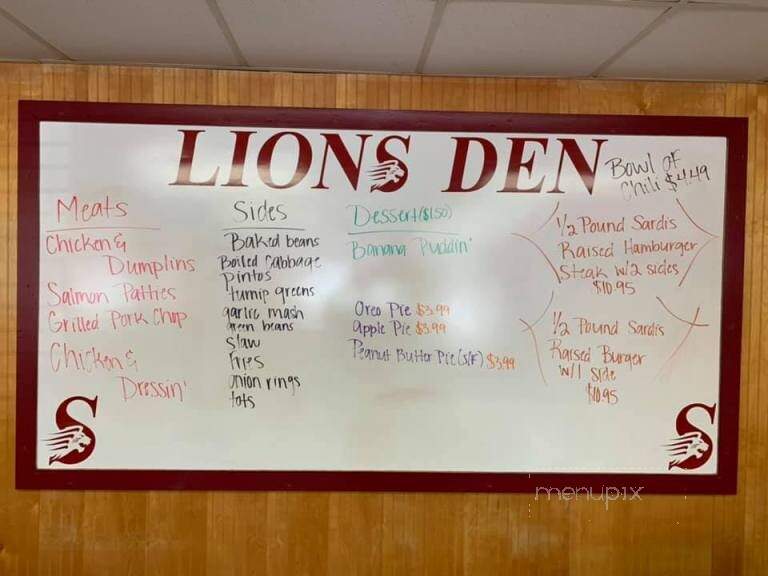 LIONS DEN
Bowl of
Chili $4.49
Meats
Chicken &
Dumplins
Salmon Patties
Grilled Pork Chop
Chicken &
Dressin'
Sides
Baked beans
Boiled Cabbage
pintos
turnip greens
garlic mash
green beans
slaw
fries
onion rings
tots
Dessert ($1.50)
Banana Puddin'
Oreo Pie $3.99
apple Pie $3.99
Peanut Butter Pie (S/F) $3.99
1/2 Pound Sardis
Raised Hamburger
Steak w/2 sides
$10.95
1/2 Pound Sardis
Raised Burger
w/1 side
$10.95
S
S
menupix